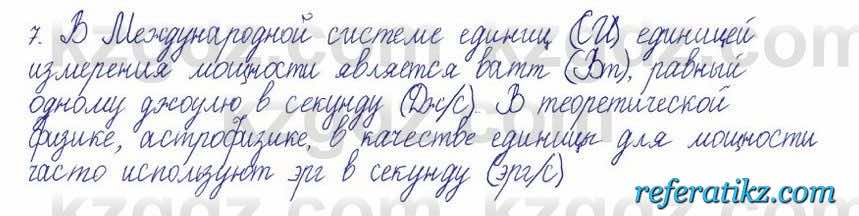 7. В Международной системе единиц (СИ) единицей
измерения мощности является ватт (Вт), равный
одному джоулю в секунду (Дж/с). В теоретической
физике, астрофизике, в качестве единицы для мощности
часто используют эрг в секунду (эрг/с)
referatikz.com